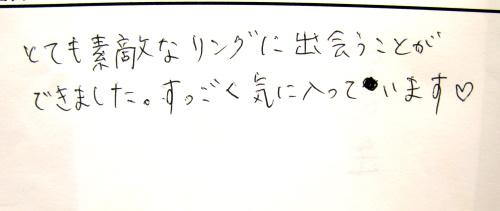 とても素敵なリングに出会うことが
できました。すっごく気に入っています♡